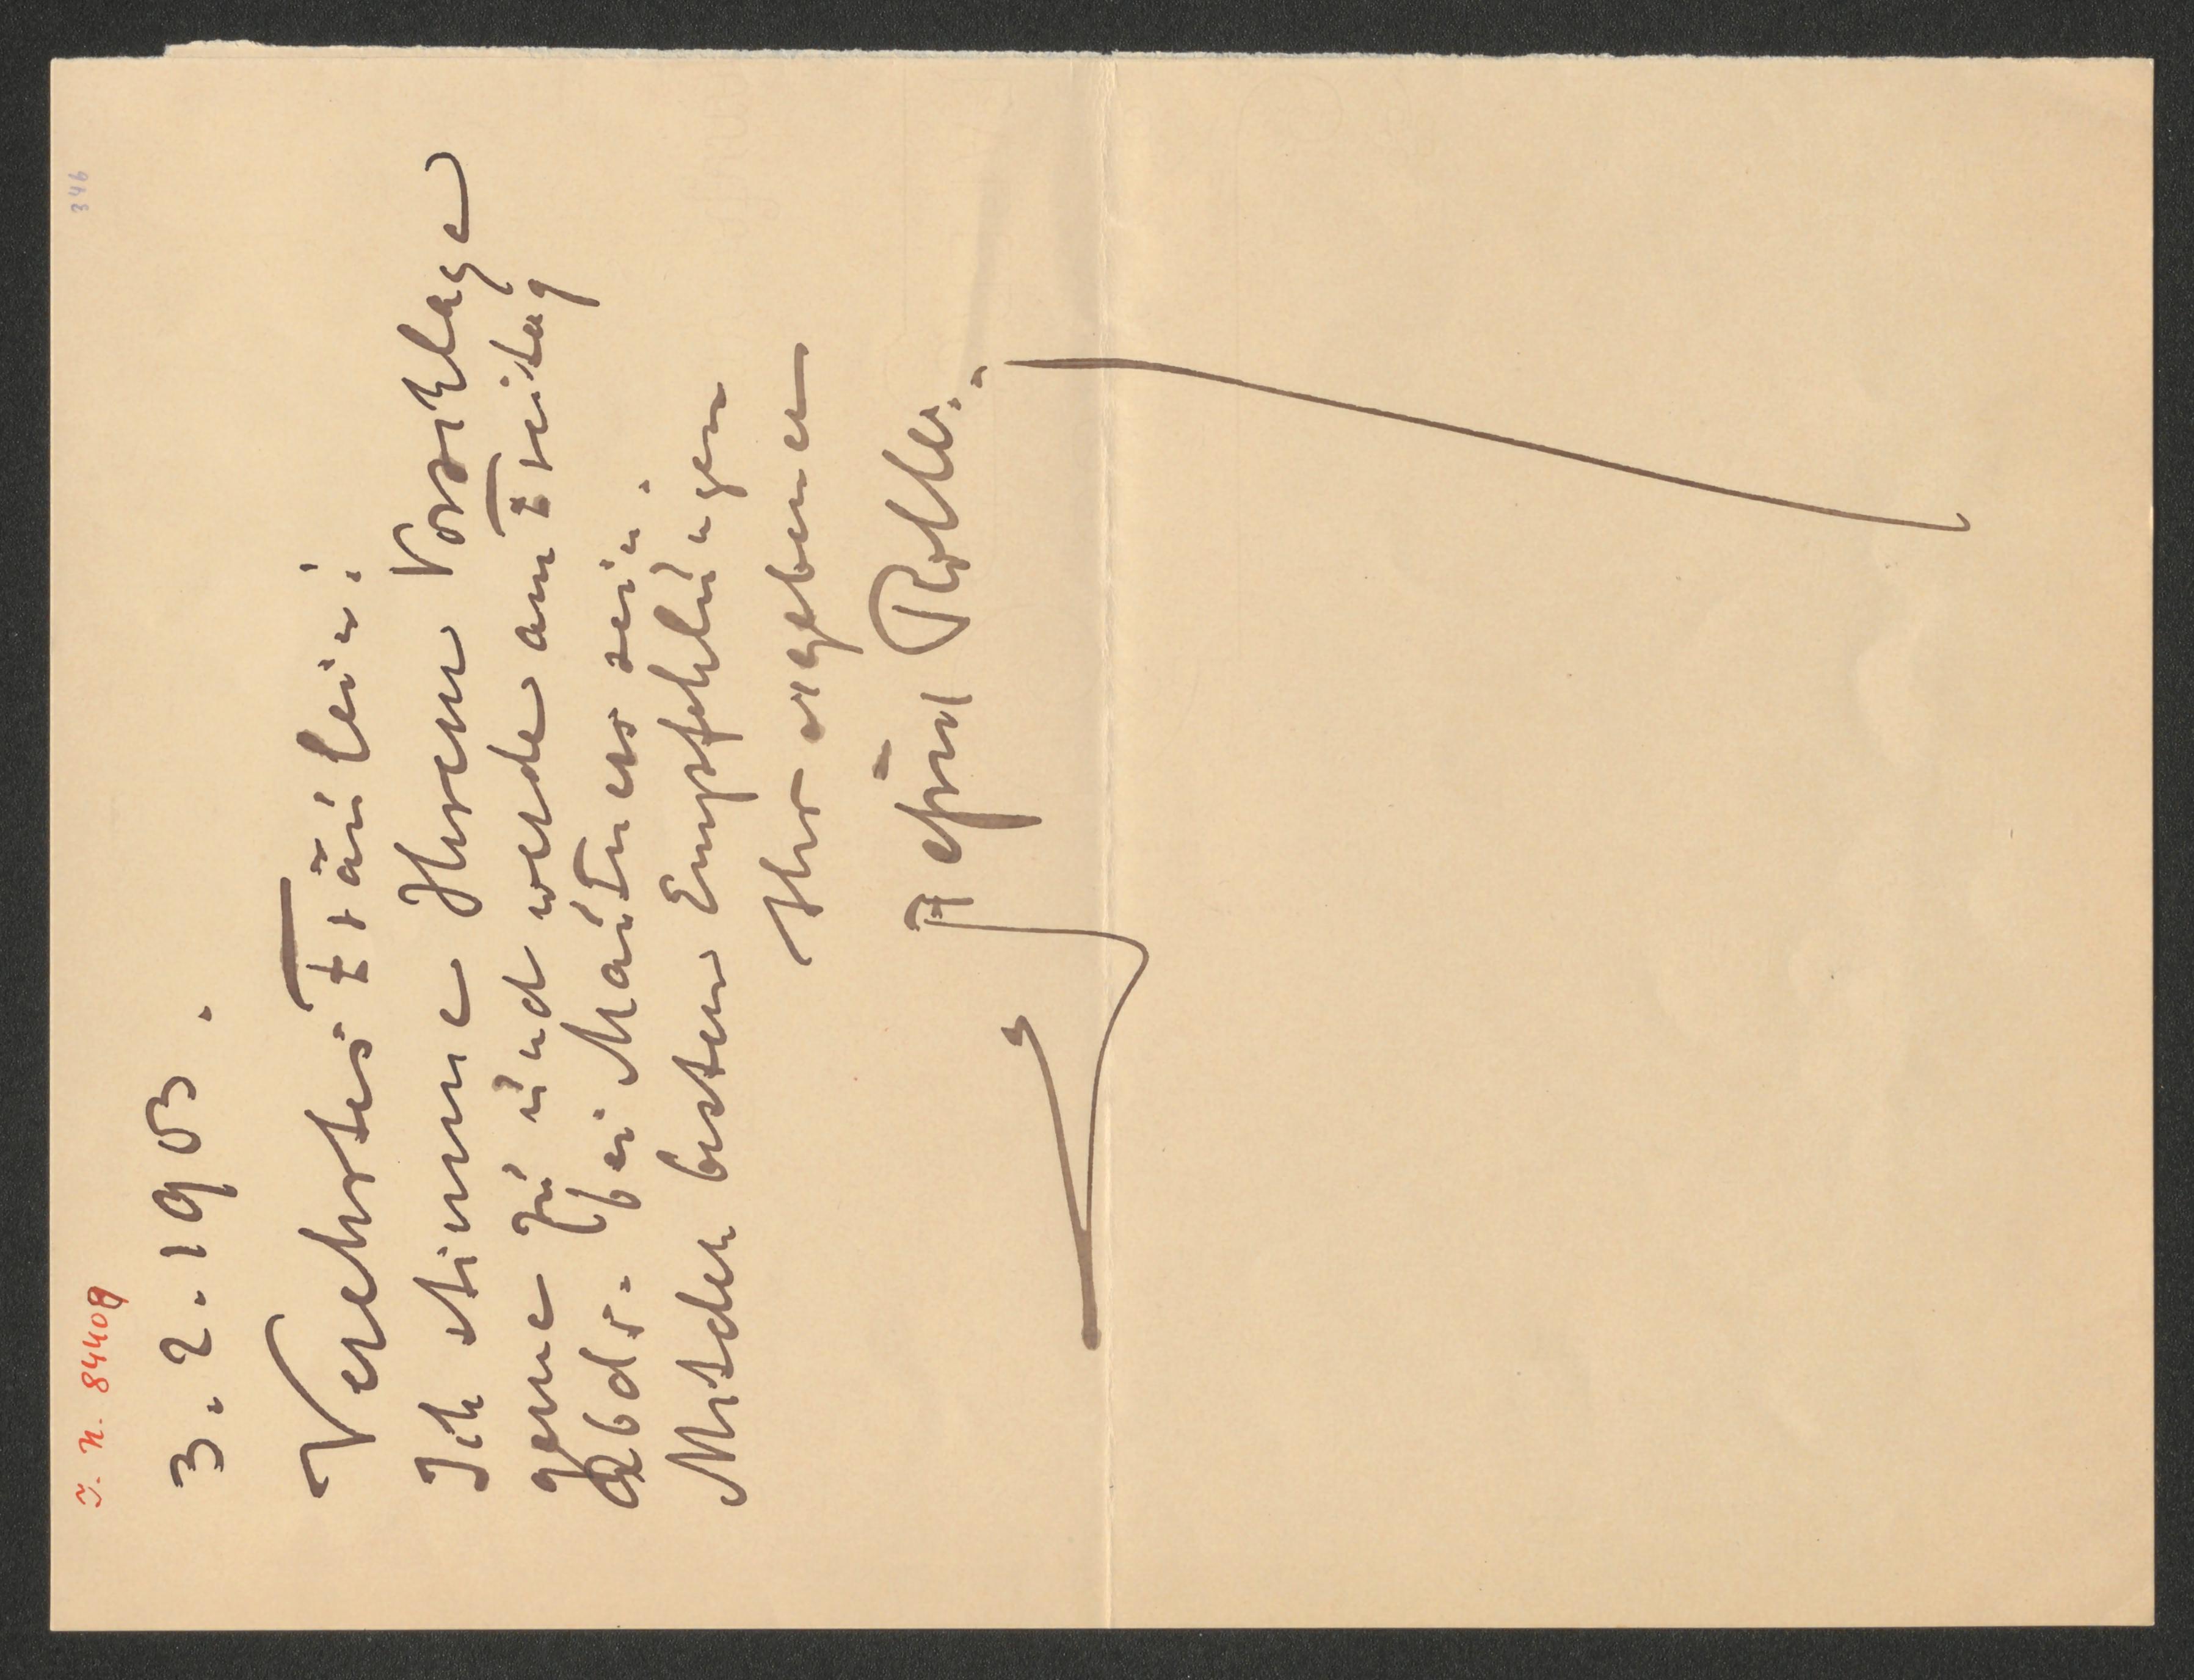 I. N. 84409
346
3. 2. 1903.
Verehrtes Fräulein:
Ich stimme Ihrem Vorschlage
gerne zu und werde am Freitag
Abds. bei Mautner sein.
Mit den besten Empfehlungen
Ihr ergebener